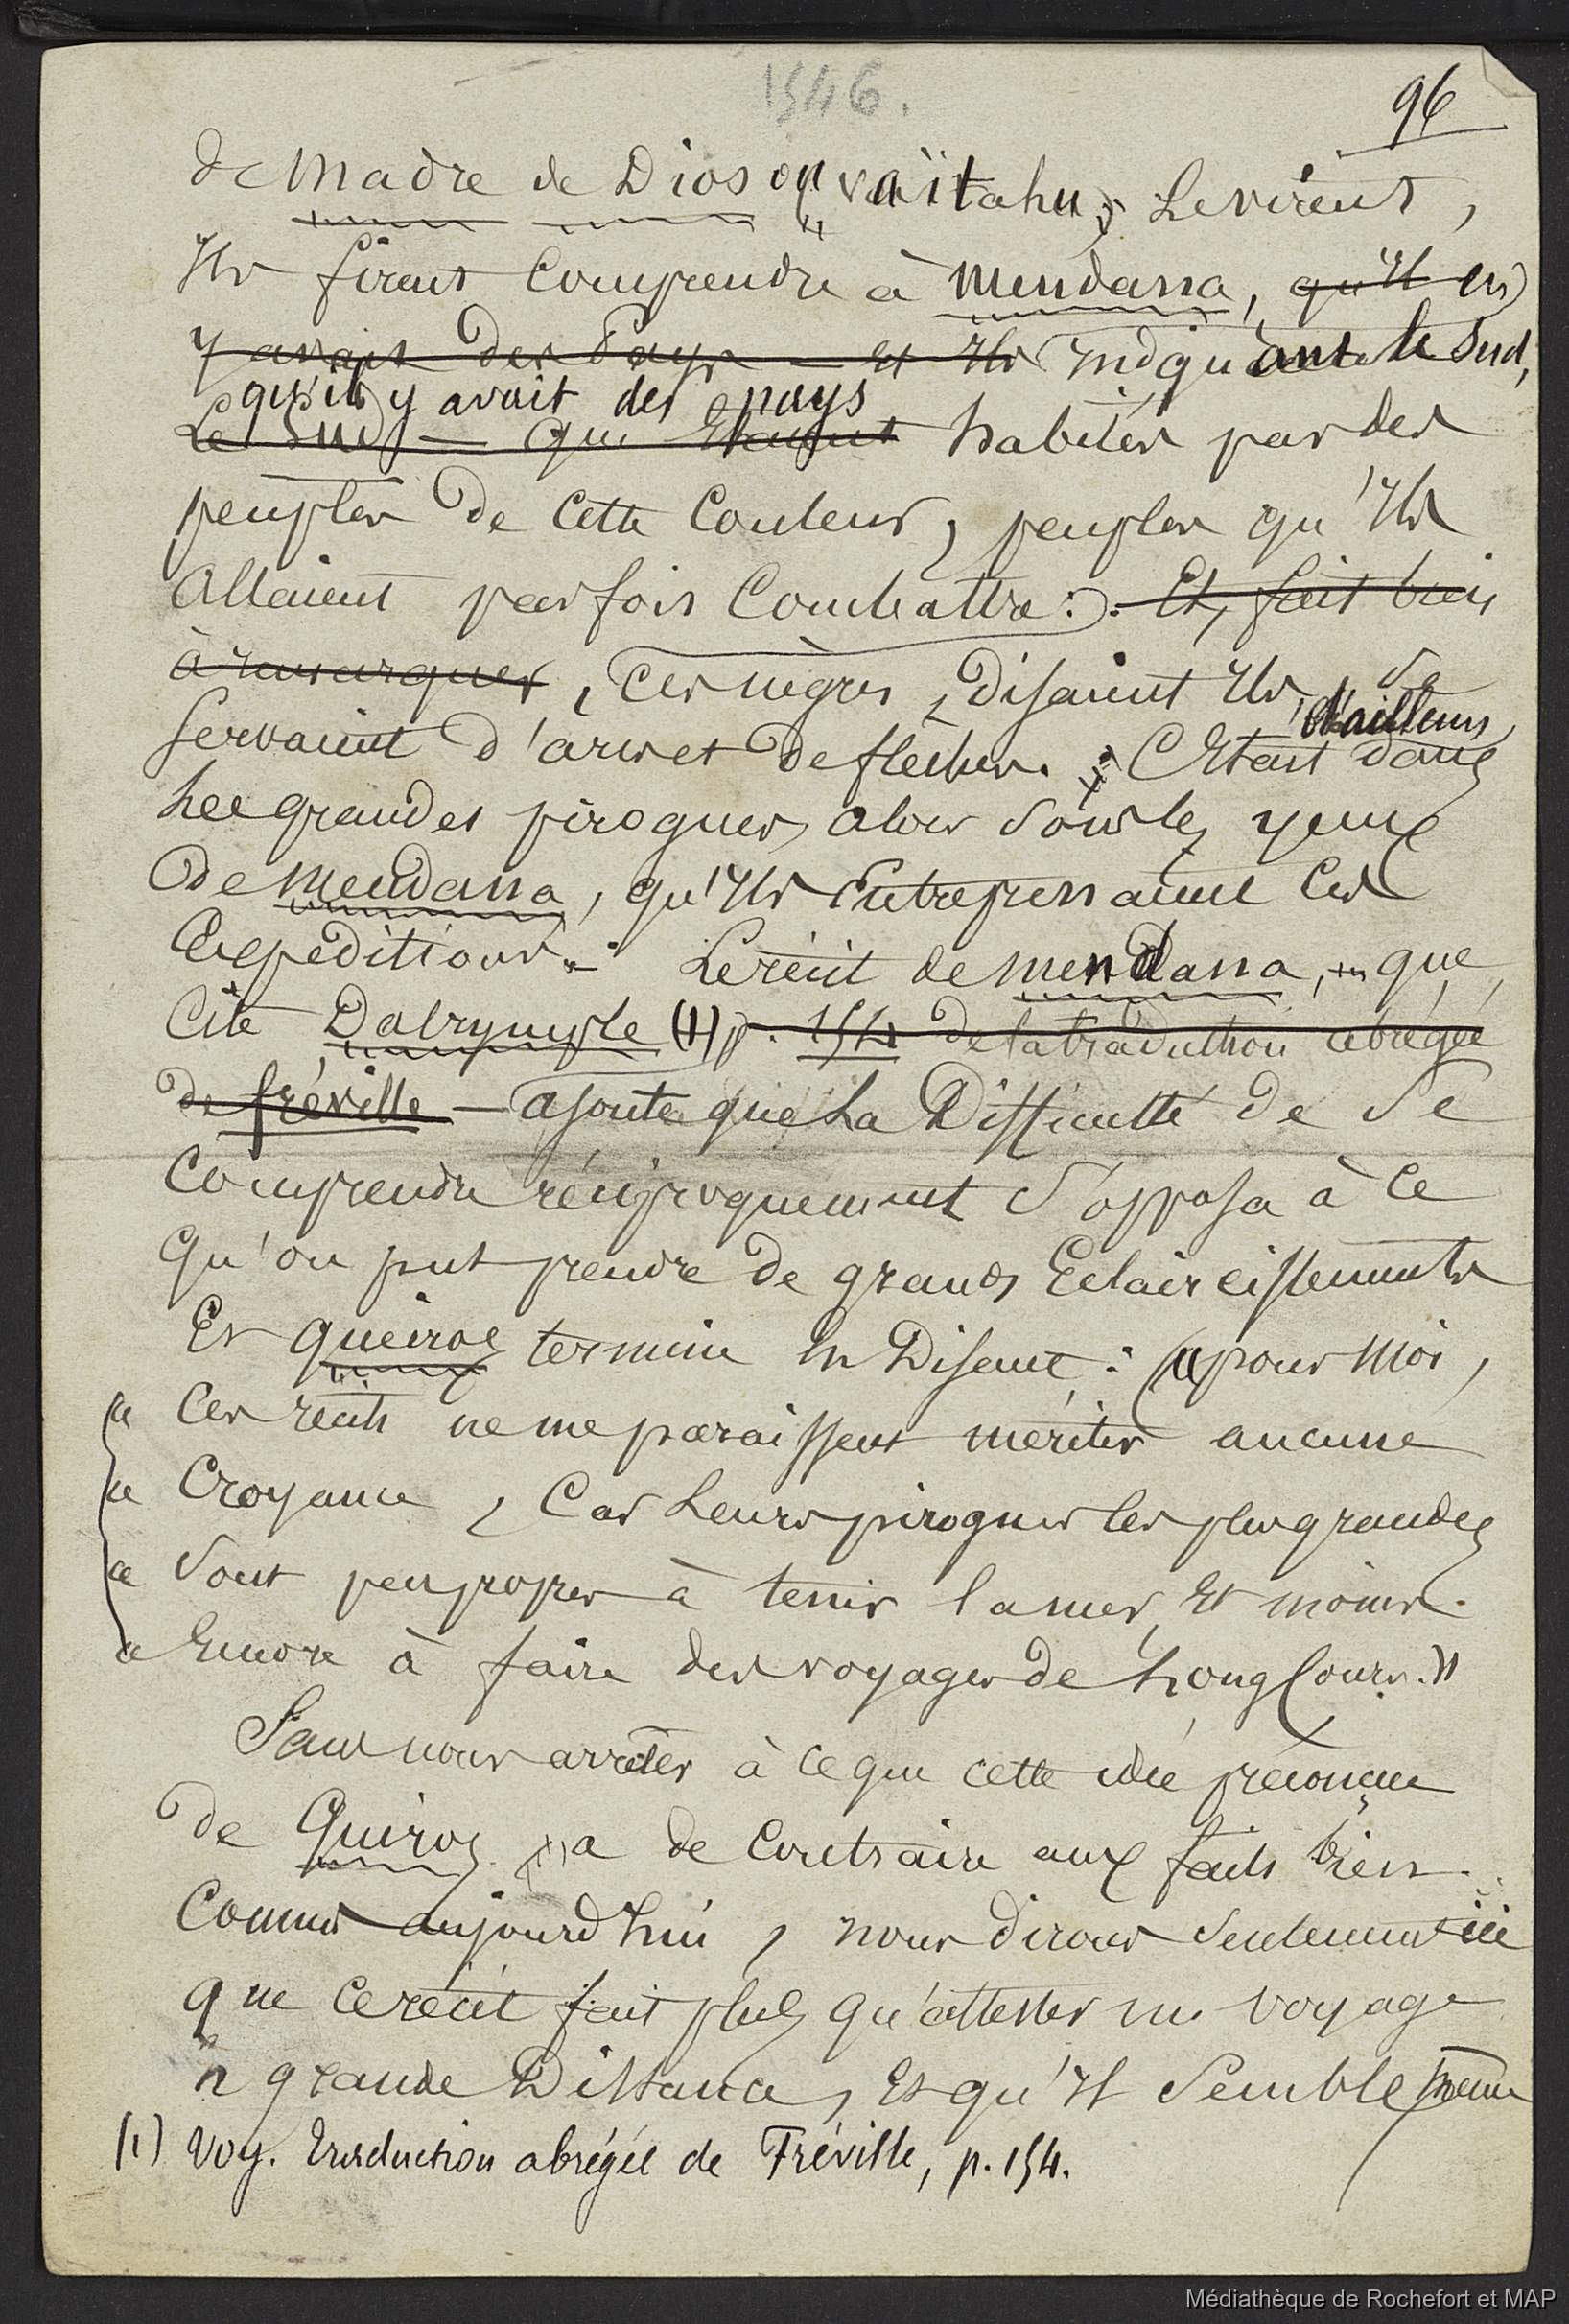 1546.
96
de Madre de Dios ou Vaïtahu, le virent,
Ils firent comprendre à Mendana, qu'il en
y avait des Pays — et ils indiquant le Sud,
qu'il y avait des pays
Le Sud — que étaient habités par des
peuples de cette couleur, peuples qu'ils
allaient parfois combattre : Et, fait bien
à remarquer, ces nègres, disaient ils, se
d'ailleurs,
servaient d'arcs et de flèches. C'était dans
les grandes pirogues, alors sous les yeux
de Mendana, qu'ils entreprenaient ces
Expéditions. — Le récit de Mendana, que
cite Dalrymple (1) p. 154 de la traduction abrégée
de fréville — ajoute que la Difficulté de se
comprendre réciproquement s'opposa à ce
qu'on put prendre de grands Eclaircissements
Et Queiros termine en Disant : « pour moi,
« ces récits ne me paraissent mériter aucune
« croyance, car leurs pirogues les plus grandes
« sont peu propres à tenir la mer, et moins
« encore à faire des voyages de long cours. »
Sans nous arrêter à ce que cette idée préconçue
de Quiros a de contraire aux faits bien
connus aujourd'hui, nous dirons seulement ici
que ce récit fait plus qu'attester un voyage
à grande Distance, et qu'il semble même
(1) Voy. traduction abrégée de Fréville, p. 154.
Médiathèque de Rochefort et MAP